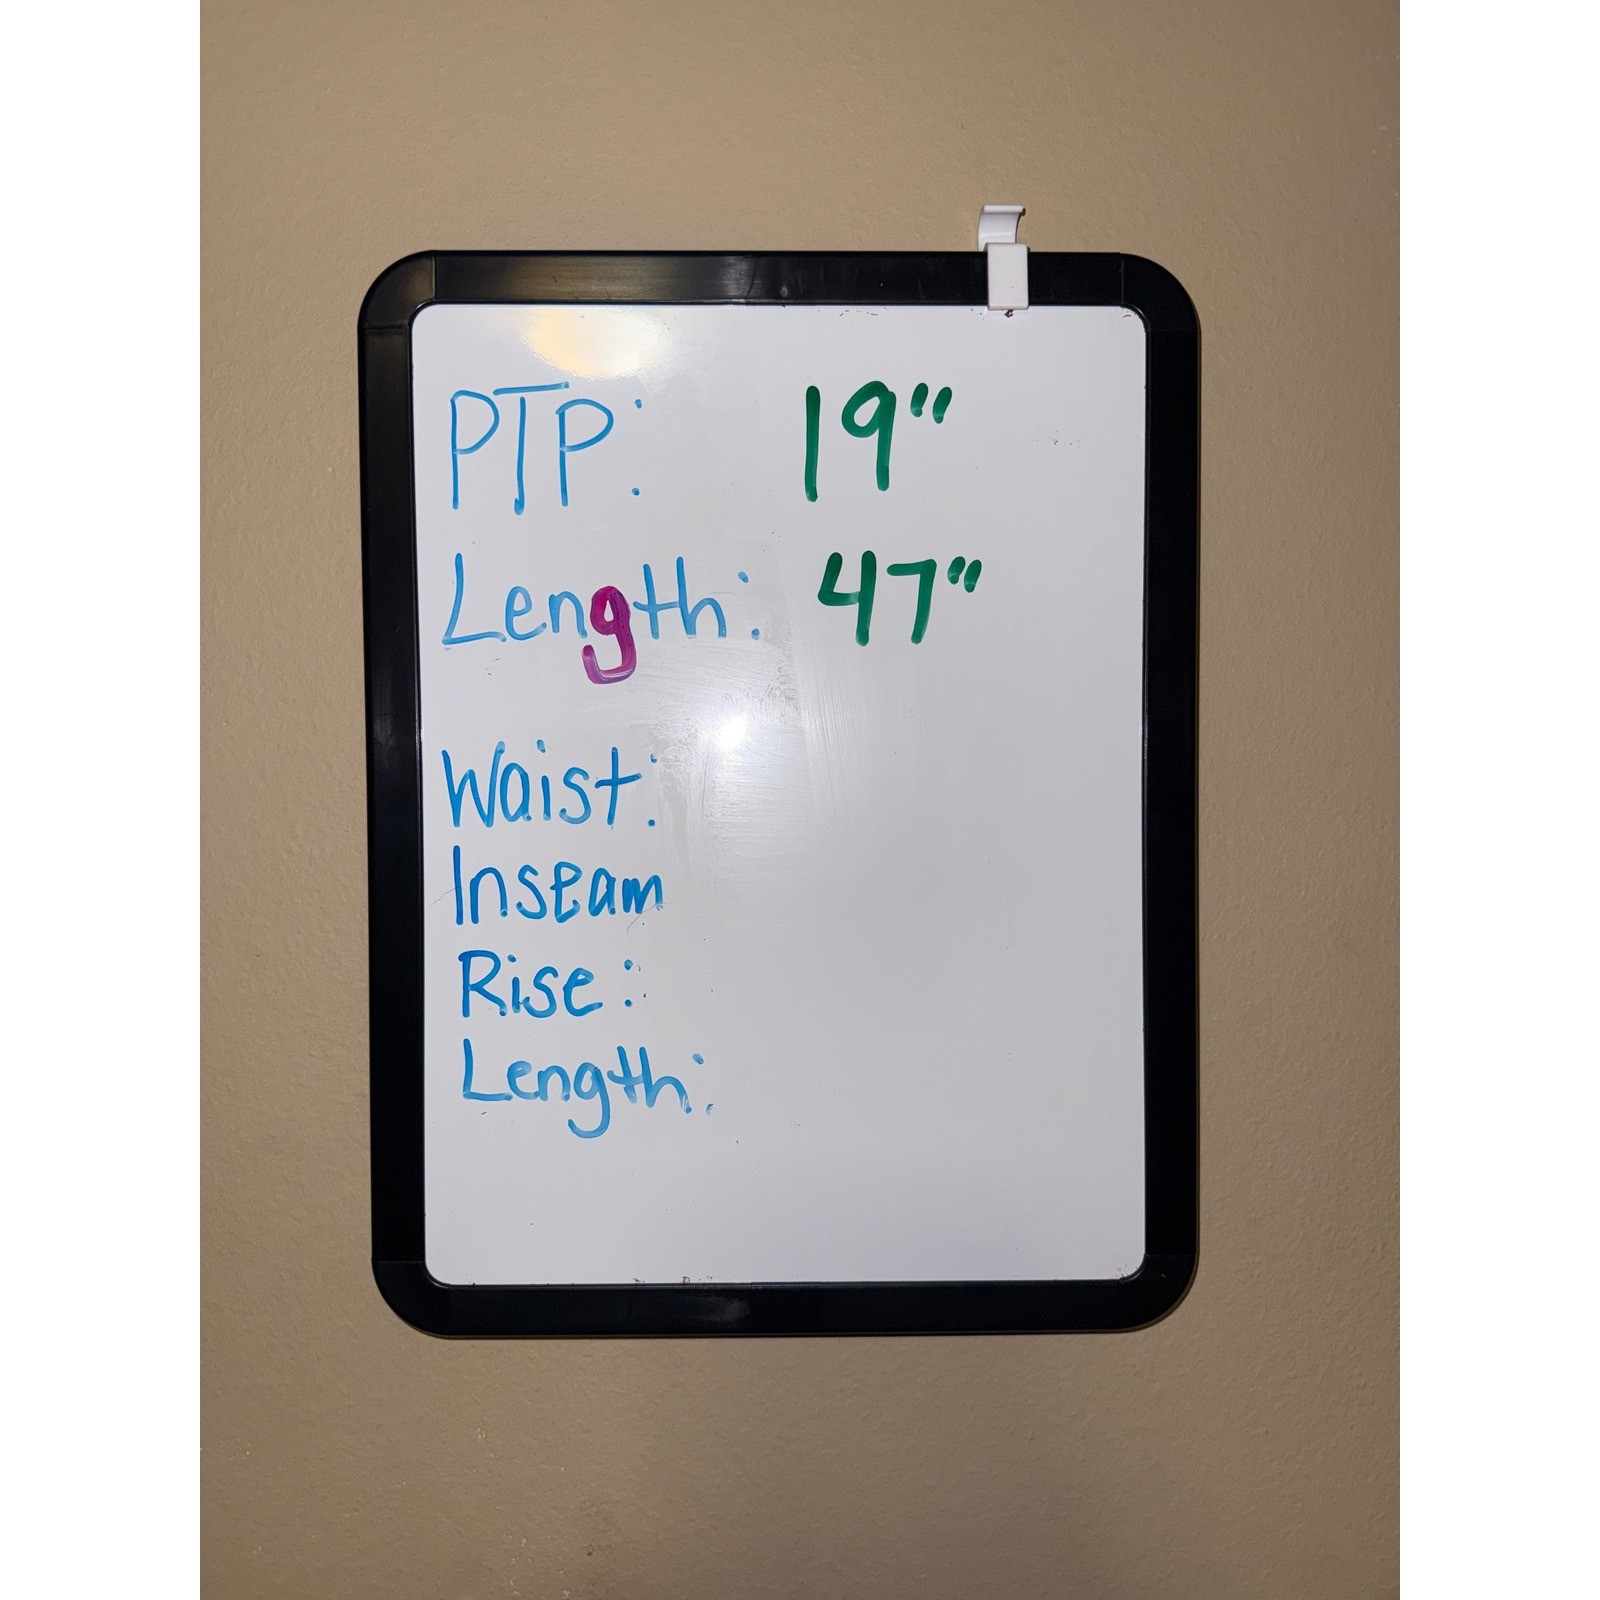 PTP: 19"
Length: 47"
Waist:
Inseam
Rise:
Length: